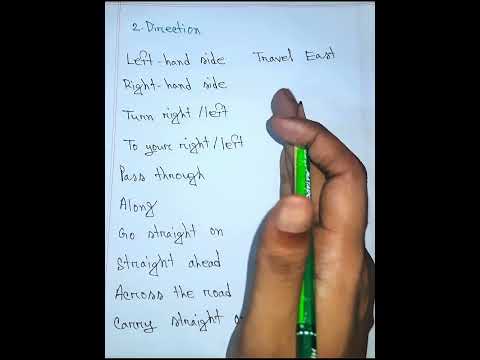 2. Direction
Left-hand side Travel East
Right-hand side
Turn right/left
To your right/left
Pass through
Along
Go straight on
Straight ahead
Across the road
Carry straight